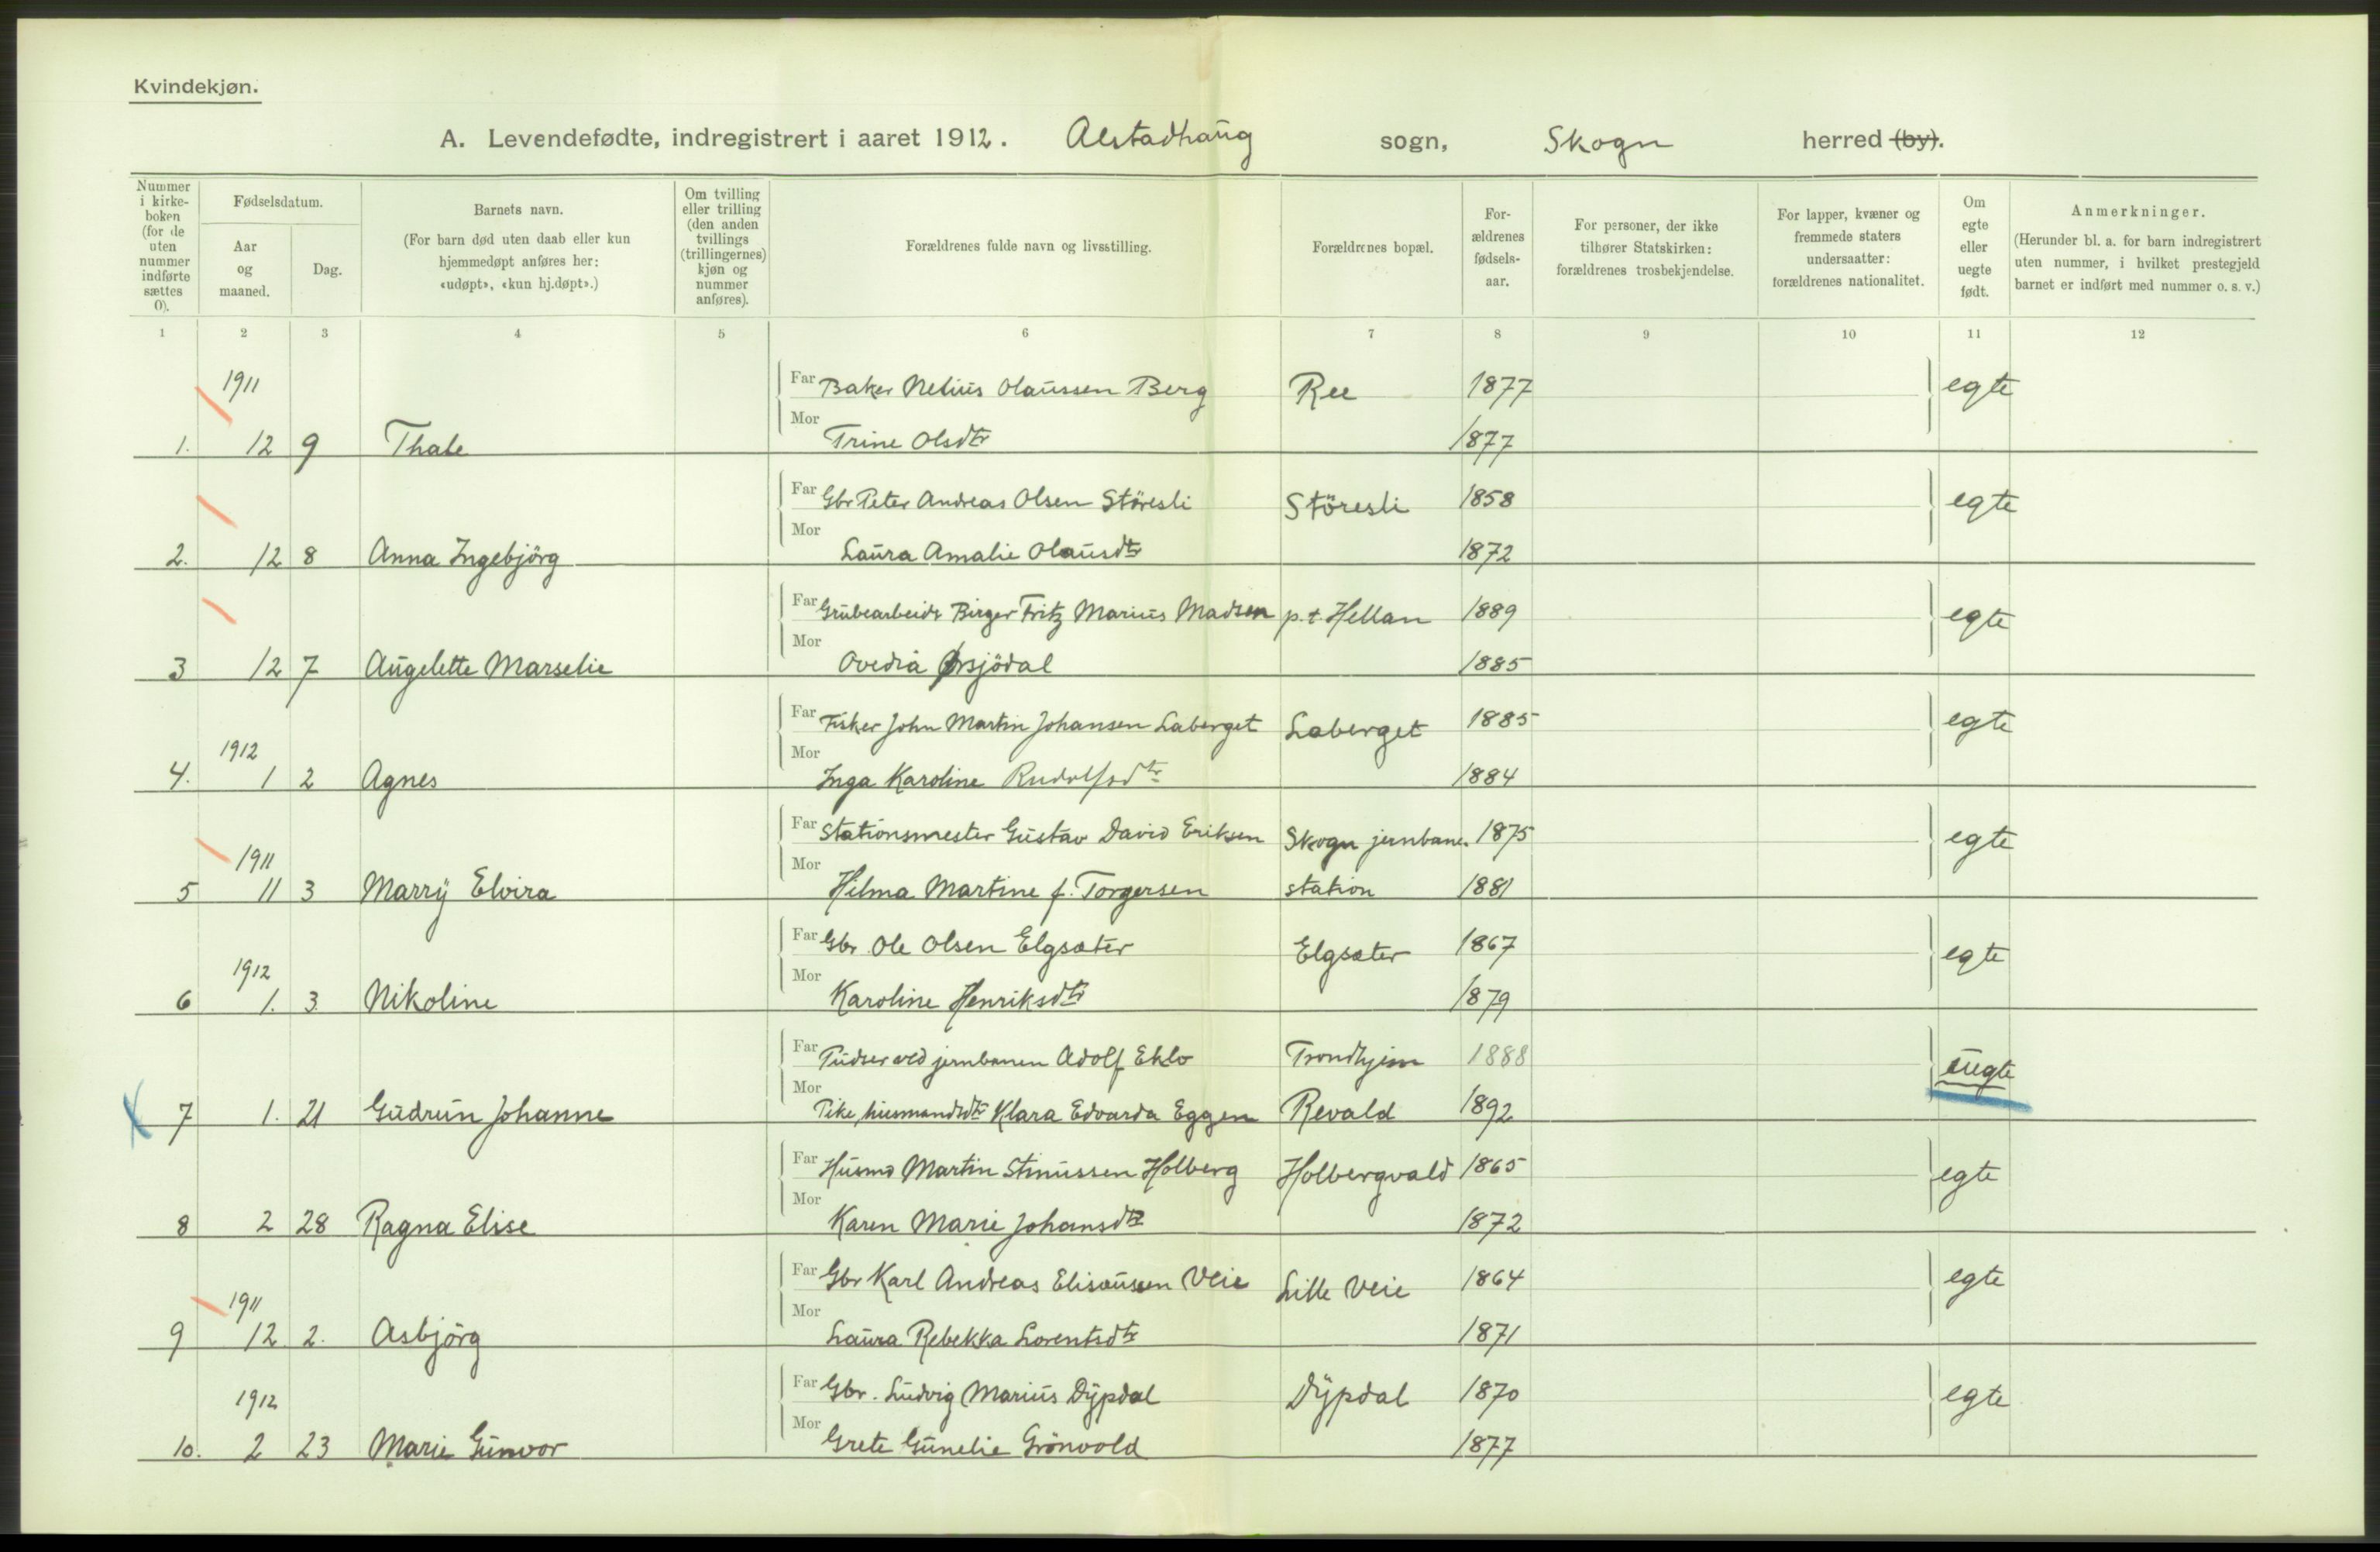 Kvindekjøn.
A. Levendefødte, indregistrert i aaret 1912. Alstadhaug sogn, Skogn herred (by).
Nummer i kirkeboken (for de uten nummer indførte sættes 0).
Fødselsdatum.
Aar og maaned.
Dag.
Barnets navn.
(For barn død uten daab eller kun hjemmedøpt anføres her: «udøpt», «kun hj.døpt».)
Om tvilling eller trilling (den anden tvillings (trillingernes) kjøn og nummer anføres).
Forældrenes fulde navn og livsstilling.
Forældrenes bopæl.
Forældrenes fødselsaar.
For personer, der ikke tilhører Statskirken: forældrenes trosbekjendelse.
For lapper, kvæner og fremmede staters undersaatter: forældrenes nationalitet.
Om egte eller uegte født.
Anmerkninger.
(Herunder bl. a. for barn indregistrert uten nummer, i hvilket prestegjeld barnet er indført med nummer o. s. v.)
1 2 3 4 5 6 7 8 9 10 11 12
1911 Far Baker Nelius Olaussen Berg Ree 1877 egte
1. 12 9 Thale Mor Trine Olsdtr 1877
Far Gbr Peter Andreas Olsen Störesli Störesli 1858 egte
2. 12 8 Anna Ingebjörg Mor Laura Amalie Olausdtr 1872
Far Grubearbeidr Birger Fritz Marius Madsen p.t. Hellan 1889 egte
3 12 7 Augelette Marselie Mor Ovedia Ørsjödal 1885
Far Fisker John Martin Johansen Laberget Laberget 1885 egte
4. 1912 1 2 Agnes Mor Inga Karoline Rudolfsdtr 1884
Far Stationsmester Gustav David Eriksen Skogn jernbane- 1875 egte
5 1911 11 3 Marry Elvira Mor Hilma Martine f. Torgersen station 1881
Far Gbr Ole Olsen Elgsæter Elgsæter 1867 egte
6 1912 1. 3 Nikoline Mor Karoline Henriksdtr 1879
Far Pudser ved jernbanen Adolf Eklo Trondhjem 1888 uegte
7 1. 21 Gudrun Johanne Mor Pike, husmandsdtr Klara Edvarda Eggen Revald 1892
Far Husmd Martin Stinussen Holberg Holbergvald 1865 egte
8 2 28 Ragna Elise Mor Karen Marie Johansdtr 1872
Far Gbr Karl Andreas Elisæussen Veie Lille Veie 1864 egte
9 1911 12 2. Asbjörg Mor Laura Rebekka Lorentsdtr 1871
1912 Far Gbr. Ludvig Marius Dypdal Dypdal 1870 egte
10. 2 23 Marie Gunvor Mor Grete Gunelie Grönvold 1877